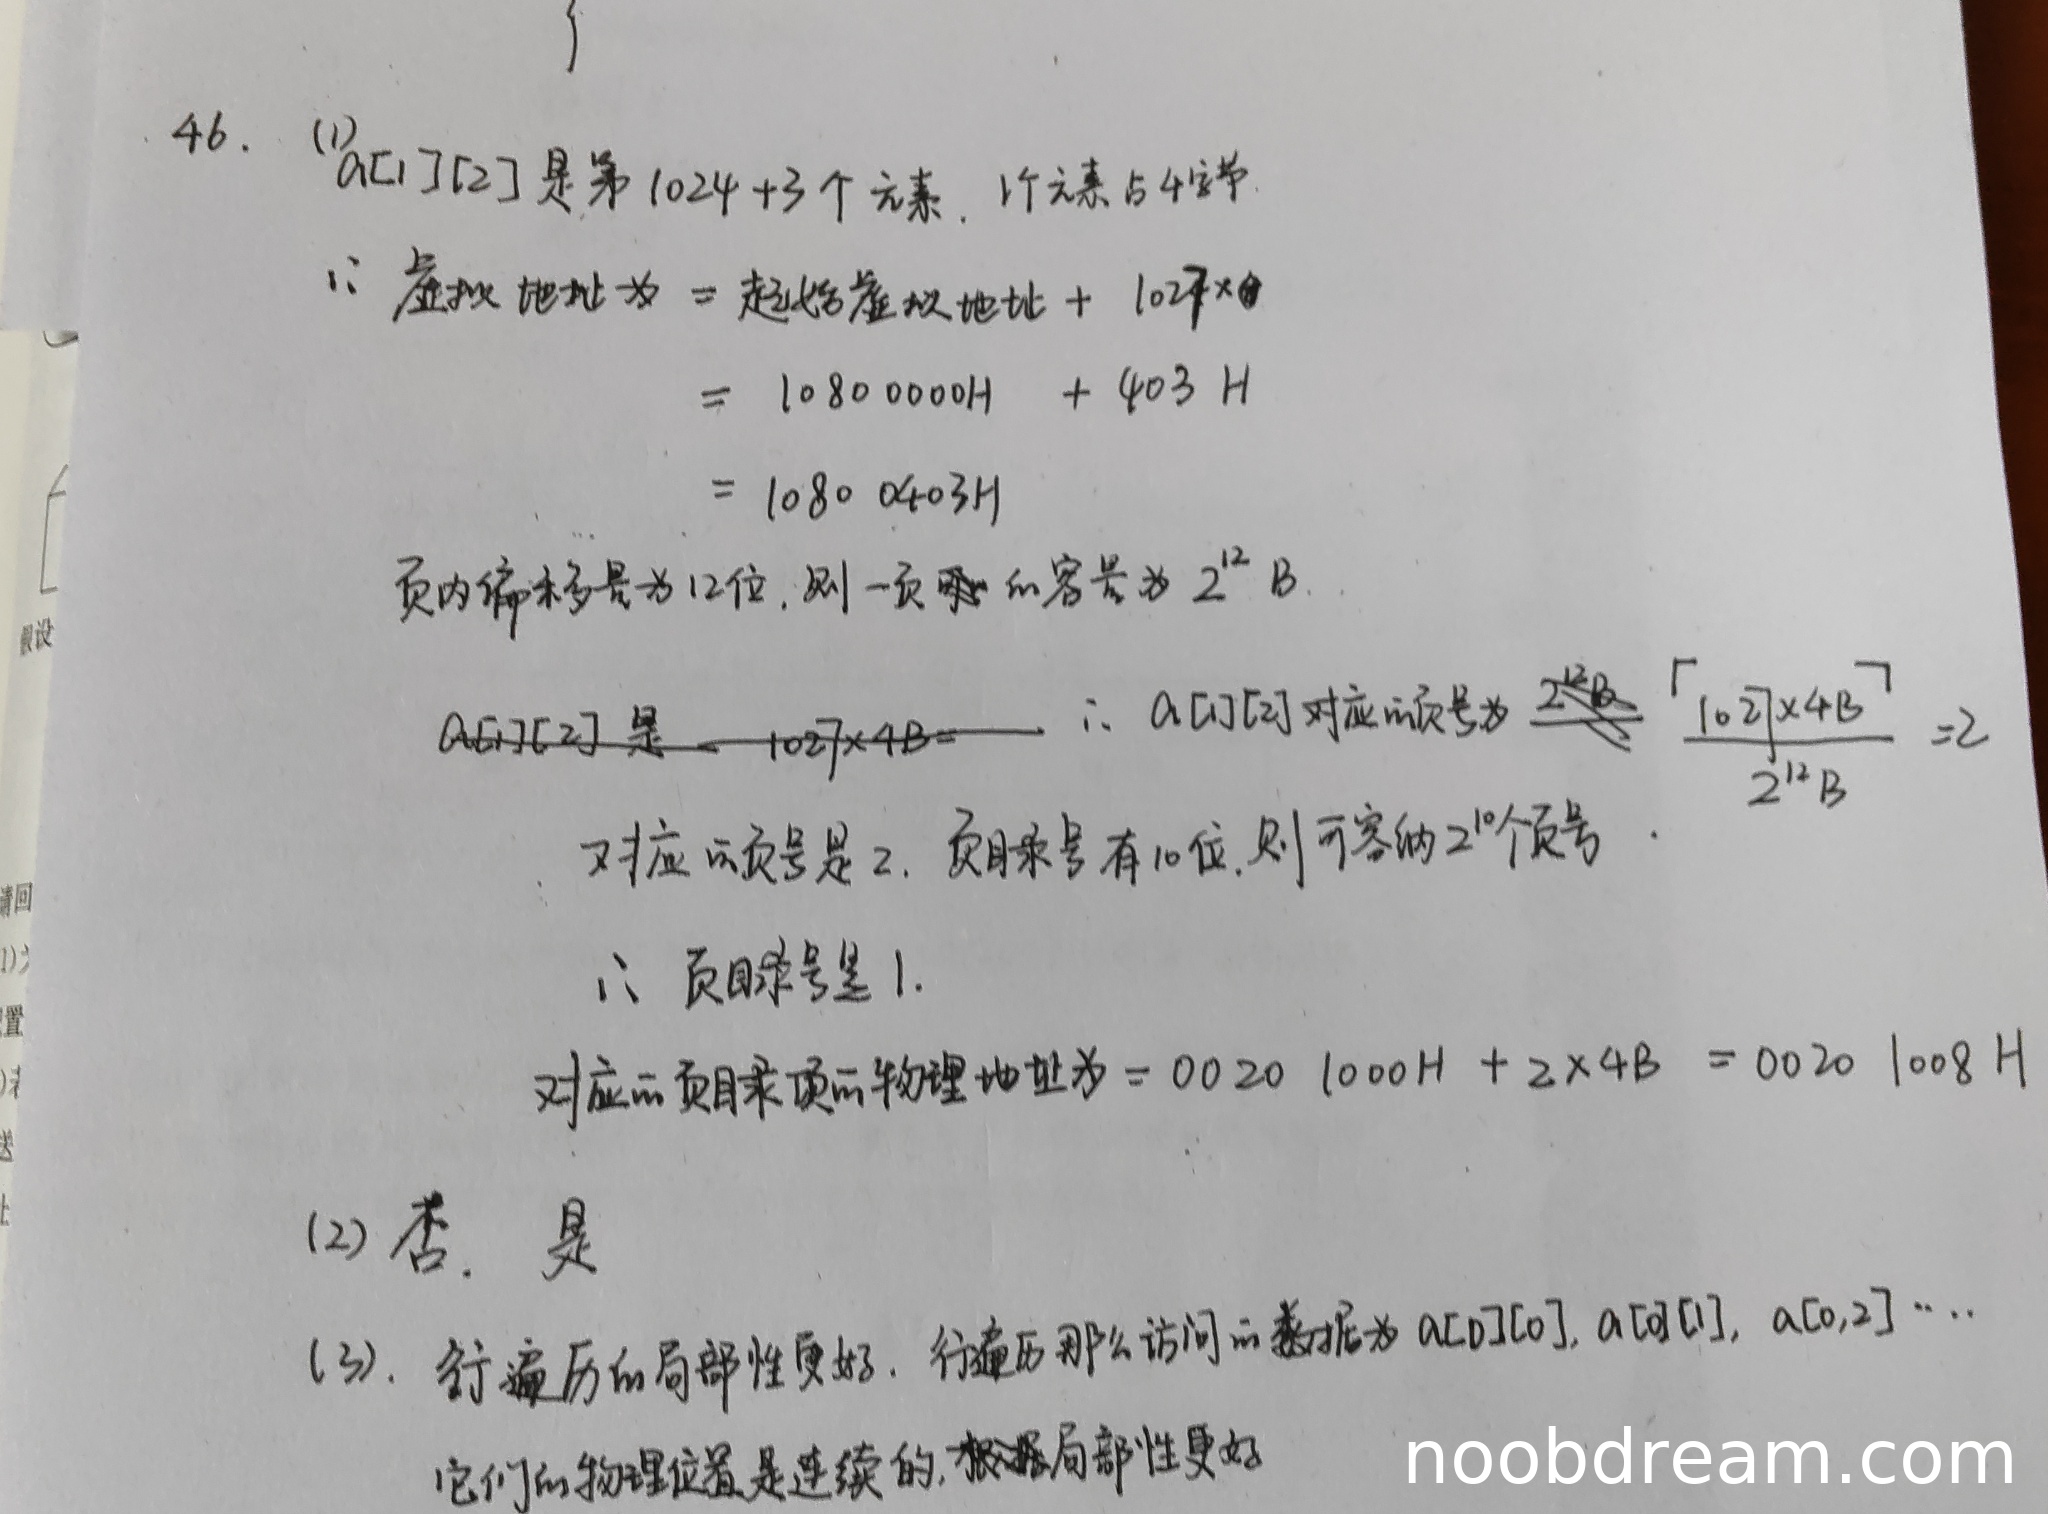 46. (1) a[1][2]是第1024+3个元素. 1个元素占4字节.
∴ 虚拟地址为 = 起始虚拟地址 + 1027×
= 1080 0000H + 403 H
= 1080 0403H
页内偏移量为12位, 则一页的容量为 2^12 B.
a[1][2] 是 1027×4B=
∴ a[1][2]对应的页号为 2^12 B ⌈1027×4B⌉ / 2^12 B =2
对应的页号是2. 页目录号有10位, 则可容纳2^10个页号.
∴ 页目录号是1.
对应的页目录项的物理地址为 = 0020 1000H + 2×4B = 0020 1008H
(2) 否. 是
(3). 行遍历的局部性更好. 行遍历那么访问的数据为a[0][0], a[0][1], a[0,2]....
它们的物理位置是连续的, 根据局部性更好
假设
请回
置
送
noobdream.com